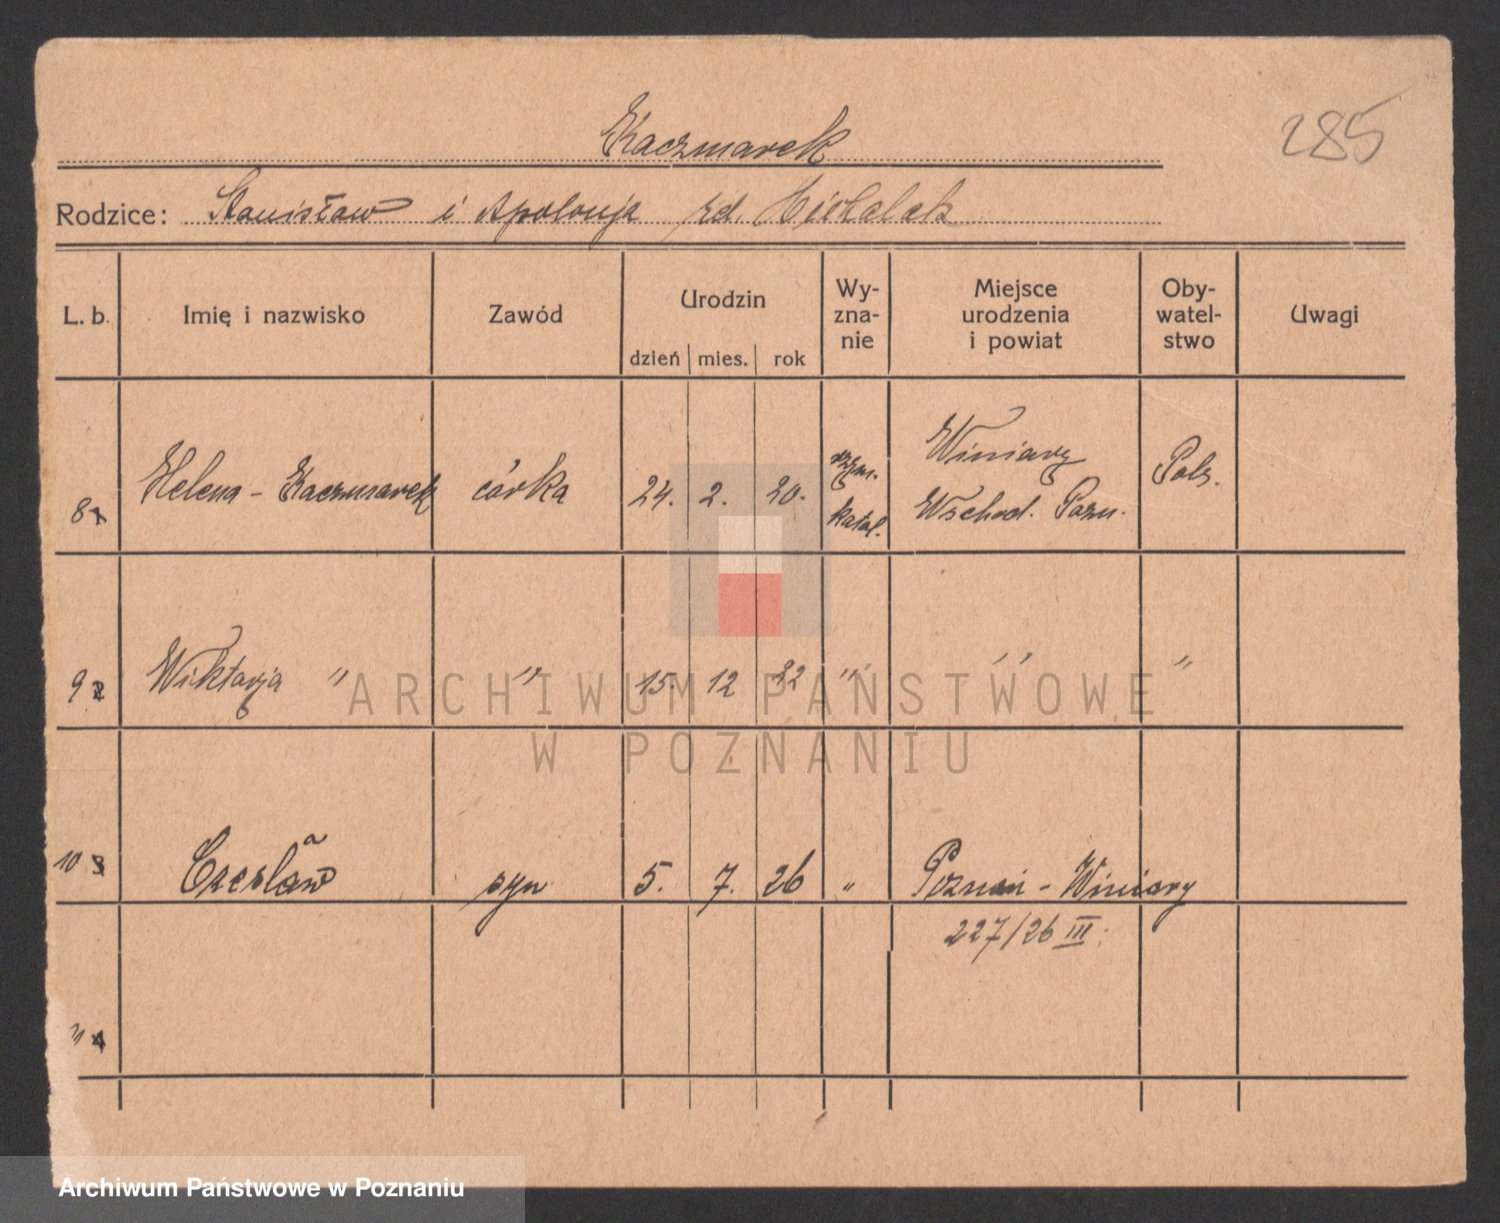 Kaczmarek
285
Rodzice: Stanisław i Apolonja zd. Michalak
L. b. Imię i nazwisko Zawód Urodzin Wy-zna-nie Miejsce urodzenia i powiat Oby-watel-stwo Uwagi
dzień mies. rok
8 1 Helena - Kaczmarek córka 24. 2. 20. rzym. katol. Winiary Wschod. Pozn. Pols.
9 2 Wiktorja " " 15. 12 22 " " "
10 3 Czesław syn 5. 7. 26 " Poznań - Winiary
227/26 III.
11 4
ARCHIWUM PAŃSTWOWE
W POZNANIU
Archiwum Państwowe w Poznaniu